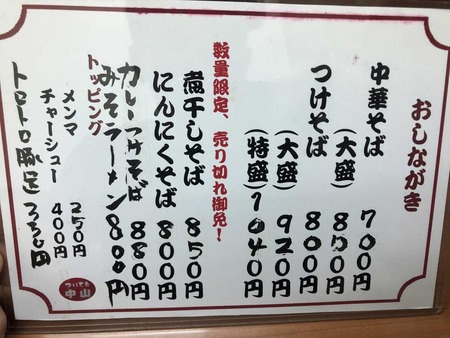 おしながき
中華そば 700円
(大盛) 850円
つけそば 800円
(大盛) 920円
(特盛) 1040円
数量限定、売り切れ御免!
煮干しそば 850円
にんにくそば 800円
カレーつけそば 880円
みそラーメン 800円
トッピング
メンマ 250円
チャーシュー 400円
トロトロ豚足 350円
中山